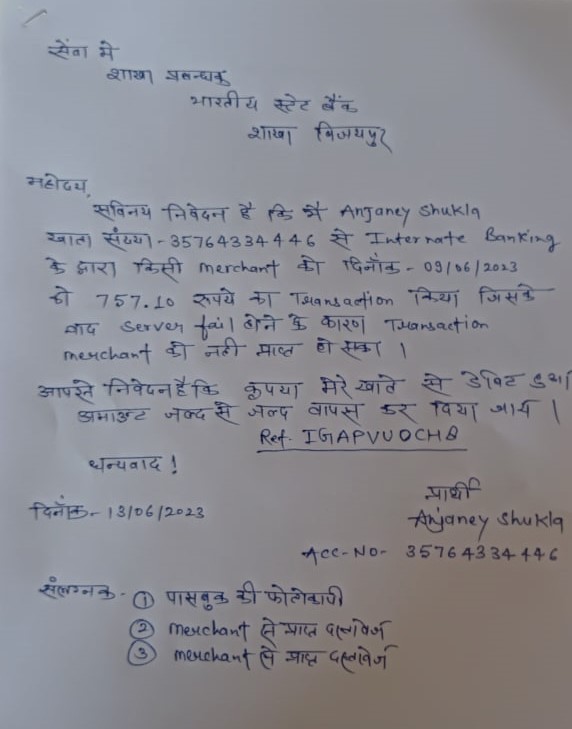 सेवा मे
शाखा प्रबन्धक
भारतीय स्टेट बैंक
शाखा विजयपुर
महोदय,
सविनय निवेदन है कि मै Anjaney Shukla
खाता संख्या - 35764334446 से Internate Banking
के द्वारा किसी merchant को दिनाँक - 09/06/2023
को 757.10 रूपये का Transaction किया जिसके
बाद Server fail होने के कारण Transaction
merchant को नही प्राप्त हो सका ।
आपसे निवेदन है कि कृपया मेरे खाते से डेबिट हुआ
अमाउंट जल्द से जल्द वापस कर दिया जाये ।
Ref. IGAPVUOCH8
धन्यवाद !
दिनाँक - 13/06/2023
प्रार्थी
Anjaney Shukla
Acc-No- 35764334446
संलग्नक - ① पासबुक की फोटोकापी
② merchant से प्राप्त दस्तावेज
③ merchant से प्राप्त दस्तावेज